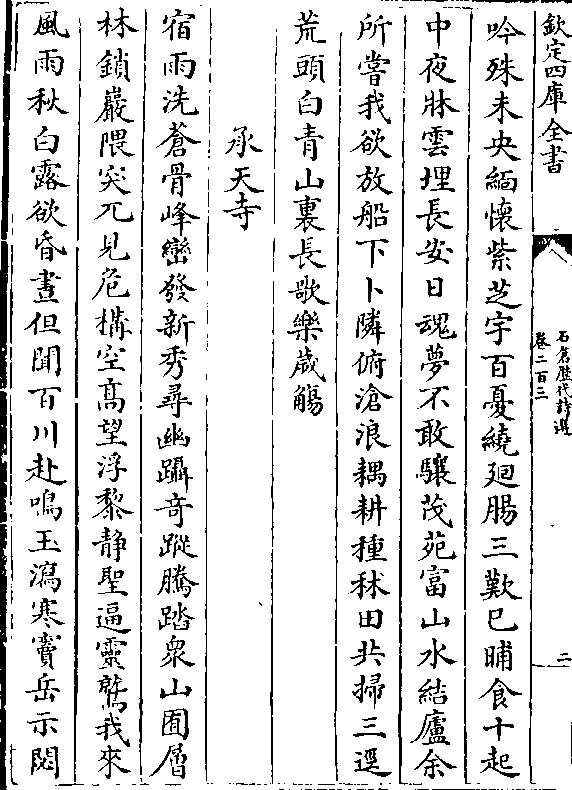 欽定四庫全書
石倉歷代詩選
卷二百三
二
吟殊未央緬懷紫芝宇百憂繞廻腸三歎已晡食十起
中夜牀雲埋長安日魂夢不敢驤茂苑富山水結廬余
所嘗我欲放船下卜隣俯滄浪耦耕種秫田共掃三逕
荒頭白青山裏長歌樂歲觴
承天寺
宿雨洗蒼骨峰巒發新秀尋幽躡竒蹤騰踏衆山囿層
林鎖巖隈突兀見危構空高望浮黎静聖逼靈鷲我來
風雨秋白露欲昏晝但聞百川赴鳴玉瀉寒竇岳示閟